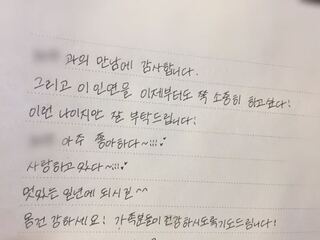 과의 만남에 감사합니다.
그리고 이 인연을 이제부터도 쭉 소중히 하고싶다!
이런 나이지만 잘 부탁드립니다!
아주 좋아하다~!!!
사랑하고 있다~!!!
멋있는 일년에 되시길^^
몸건강하세요! 가족분들이 건강하시도록 기도드립니다!